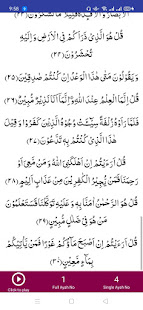 9:56
الْأَبْصَارَ وَالْأَفْئِدَةَ قَلِيلًا مَّا تَشْكُرُونَ (٢٣)
قُلْ هُوَ الَّذِي ذَرَأَكُمْ فِي الْأَرْضِ وَإِلَيْهِ
تُحْشَرُونَ (٢٤)
وَيَقُولُونَ مَتَى هَٰذَا الْوَعْدُ إِنْ كُنْتُمْ صَٰدِقِينَ (٢٥)
قُلْ إِنَّمَا الْعِلْمُ عِنْدَ اللَّهِ وَإِنَّمَا أَنَا نَذِيرٌ مُّبِينٌ (٢٦)
فَلَمَّا رَأَوْهُ زُلْفَةً سِيٓئَتْ وُجُوهُ الَّذِينَ كَفَرُوا وَقِيلَ
هَٰذَا الَّذِي كُنْتُمْ بِهِ تَدَّعُونَ (٢٧)
قُلْ أَرَءَيْتُمْ إِنْ أَهْلَكَنِيَ اللَّهُ وَمَنْ مَّعِيَ أَوْ
رَحِمَنَا فَمَنْ يُّجِيرُ الْكَٰفِرِينَ مِنْ عَذَابٍ أَلِيمٍ (٢٨)
قُلْ هُوَ الرَّحْمَٰنُ ءَامَنَّا بِهِ وَعَلَيْهِ تَوَكَّلْنَا فَسَتَعْلَمُونَ
مَنْ هُوَ فِي ضَلَٰلٍ مُّبِينٍ (٢٩)
قُلْ أَرَءَيْتُمْ إِنْ أَصْبَحَ مَآؤُكُمْ غَوْرًا فَمَنْ يَّأْتِيكُمْ
بِمَآءٍ مَّعِينٍ (٣٠)
1 4
Click to play Full Ayah No Single Ayah No